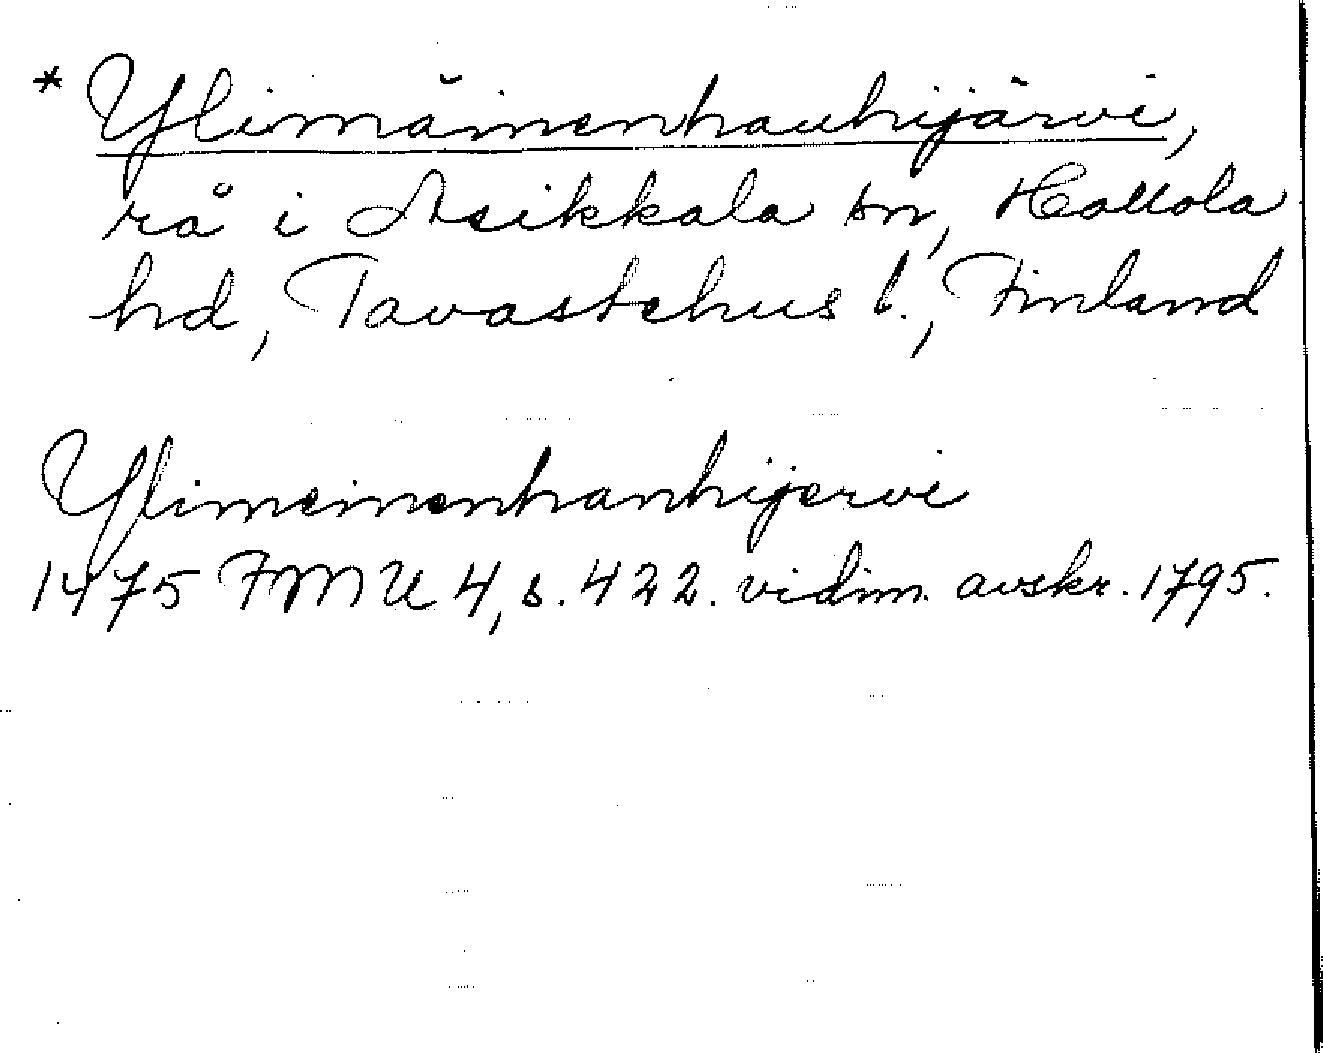 * Ylimäinenhauhijärvi,
rå i Asikkala sn, Hollola
hd, Tavastehus l., Finland
Ylimeinenhanhijervi
1475 FMU 4, s. 422. vidim. avskr. 1795.